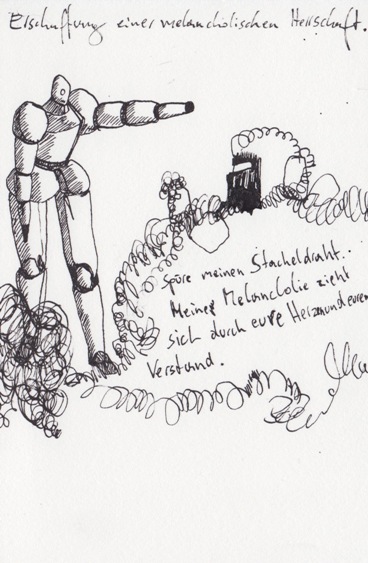 Erschaffung einer melancholischen Herrschaft.
Spüre meinen Stacheldraht.
Meine Melancholie zieht
sich durch eure Herzen und euren
Verstand.